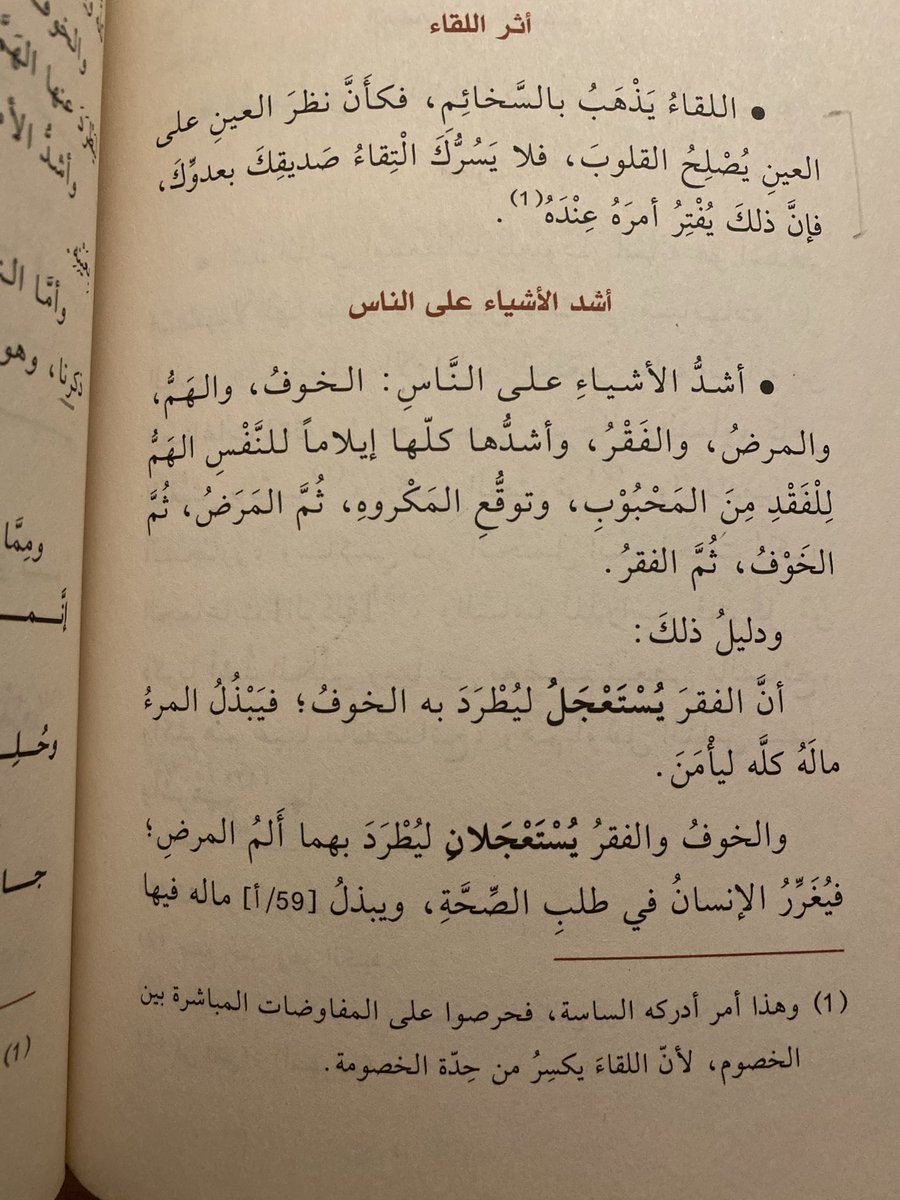 أثر اللقاء
• اللقاءُ يَذْهَبُ بالسَّخائِم، فكأَنَّ نظرَ العينِ على
العينِ يُصْلِحُ القلوبَ، فلا يَسُرُّكَ الْتِقاءُ صَديقِكَ بعدوِّكَ،
فإنَّ ذلكَ يُفْتِرُ أمرَهُ عِنْدَهُ(1).
أشد الأشياء على الناس
• أشدُّ الأشياءِ على النَّاسِ: الخوفُ، والهَمُّ،
والمرضُ، والفَقْرُ، وأشدُّها كلّها إيلاماً للنَّفْسِ الهَمُّ
لِلْفَقْدِ مِنَ المَحْبُوْبِ، وتوقُّعِ المَكْروهِ، ثُمَّ المَرَضُ، ثُمَّ
الخَوْفُ، ثُمَّ الفقرُ.
ودليلُ ذلكَ:
أنَّ الفقرَ يُسْتَعْجَلُ ليُطْرَدَ به الخوفُ؛ فيَبْذُلُ المرءُ
مالَهُ كلَّه ليأْمَنَ.
والخوفُ والفقرُ يُسْتَعْجَلانِ ليُطْرَدَ بهما أَلمُ المرضِ؛
فيُغَرِّرُ الإنسانُ في طلبِ الصِّحَّةِ، ويبذلُ [59/أ] ماله فيها
(1) وهذا أمر أدركه الساسة، فحرصوا على المفاوضات المباشرة بين
الخصوم، لأنّ اللقاءَ يكسِرُ من حِدّة الخصومة.
وأمَّا
ذكرنا، وهو
ومِمَّا
(1)